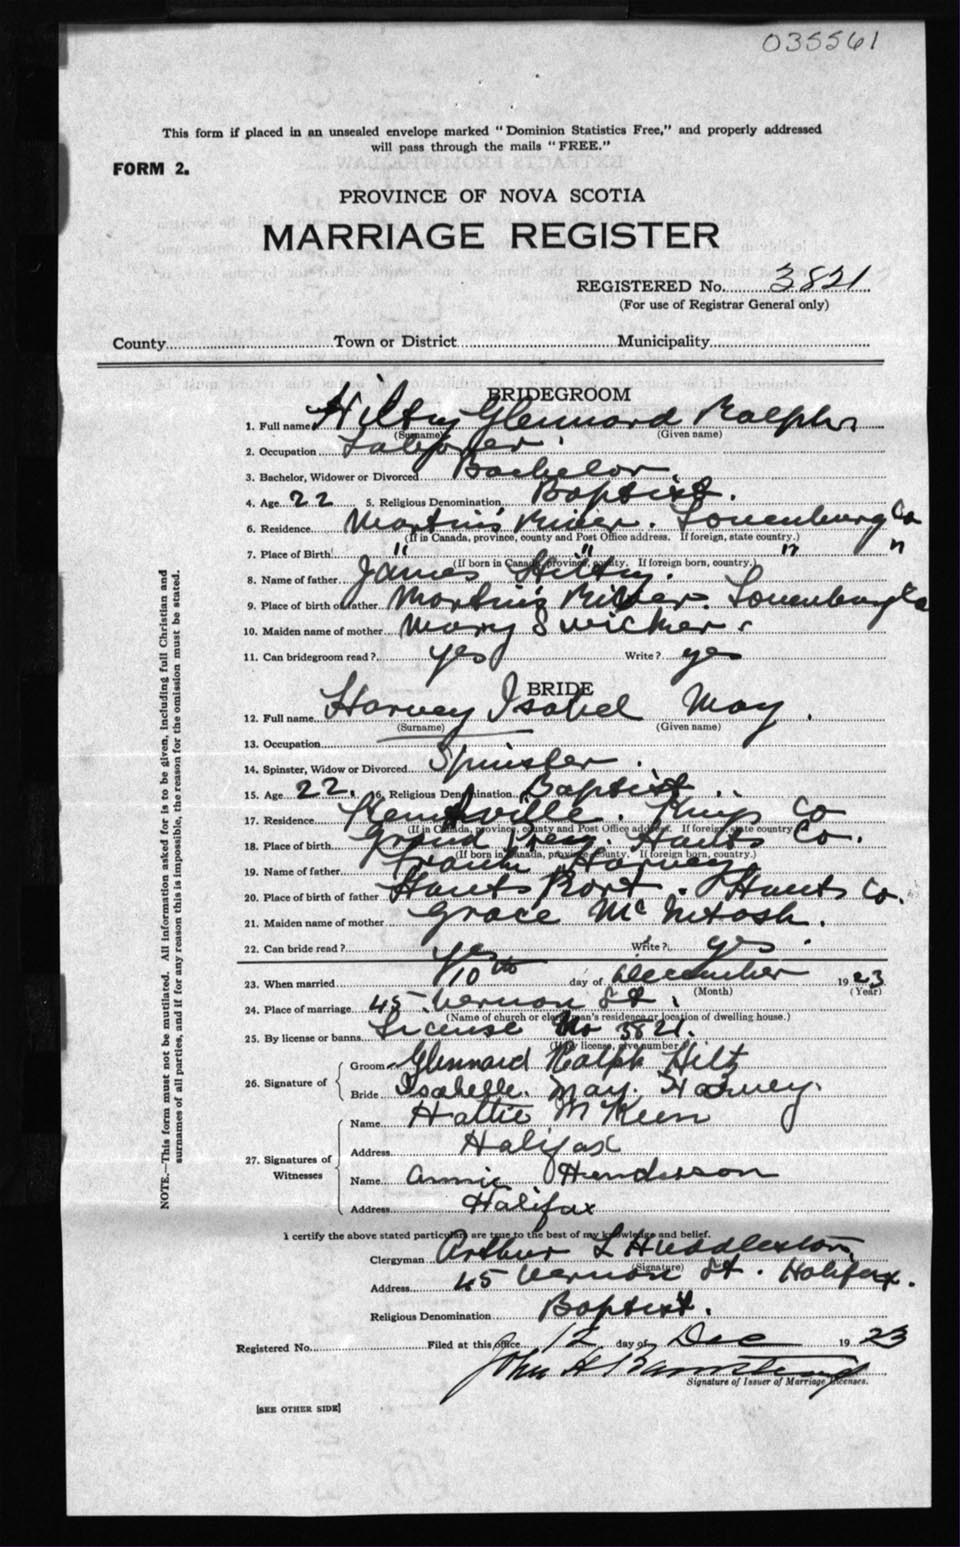 035561
This form if placed in an unsealed envelope marked "Dominion Statistics Free," and properly addressed
will pass through the mails "FREE."
FORM 2.
PROVINCE OF NOVA SCOTIA
MARRIAGE REGISTER
REGISTERED No. 3821
(For use of Registrar General only)
County Town or District Municipality
BRIDEGROOM
1. Full name Hilty Glennard Ralph
(Surname) (Given name)
2. Occupation Laborer.
3. Bachelor, Widower or Divorced Bachelor.
4. Age 22 5. Religious Denomination Baptist.
6. Residence Martin's River. Lunenburg Co
(If in Canada, province, county and Post Office address. If foreign, state country.)
7. Place of Birth " " " "
(If born in Canada, province, county. If foreign born, country.)
8. Name of father James Hilty.
9. Place of birth of father Martin's River. Lunenburg Co
10. Maiden name of mother Mary Swicker.
11. Can bridegroom read? yes Write? yes
BRIDE
12. Full name Harvey Isabel May.
(Surname) (Given name)
13. Occupation
14. Spinster, Widow or Divorced Spinster.
15. Age 22. 16. Religious Denomination Baptist.
17. Residence Kentville. Kings Co
(If in Canada, province, county and Post Office address. If foreign, state country.)
18. Place of birth Grand Prey. Hants Co.
(If born in Canada, province, county. If foreign born, country.)
19. Name of father Frank Harvey
20. Place of birth of father Hants Port. Hants Co.
21. Maiden name of mother Grace McIntosh.
22. Can bride read? yes Write? yes.
23. When married 10th day of December 1923
(Month) (Year)
24. Place of marriage 45 Vernon St.
(Name of church or clergyman's residence or location of dwelling house.)
25. By license or banns License No 3821.
(If by license, give number)
26. Signature of
Groom Glennard Ralph Hiltz
Bride Isabelle. May. Harvey.
27. Signatures of Witnesses
Name Hattie McKeen
Address Halifax
Name Annie Henderson
Address Halifax
I certify the above stated particulars are true to the best of my knowledge and belief.
Clergyman Arthur L Huddleston,
(Signature)
Address 45 Vernon St. Halifax.
Religious Denomination Baptist.
Registered No. Filed at this office 12 day of Dec 1923
John H Barnstead
Signature of Issuer of Marriage Licenses.
[SEE OTHER SIDE]
NOTE.—This form must not be mutilated. All information asked for is to be given, including full Christian and
surnames of all parties, and if for any reason this is impossible, the reason for the omission must be stated.